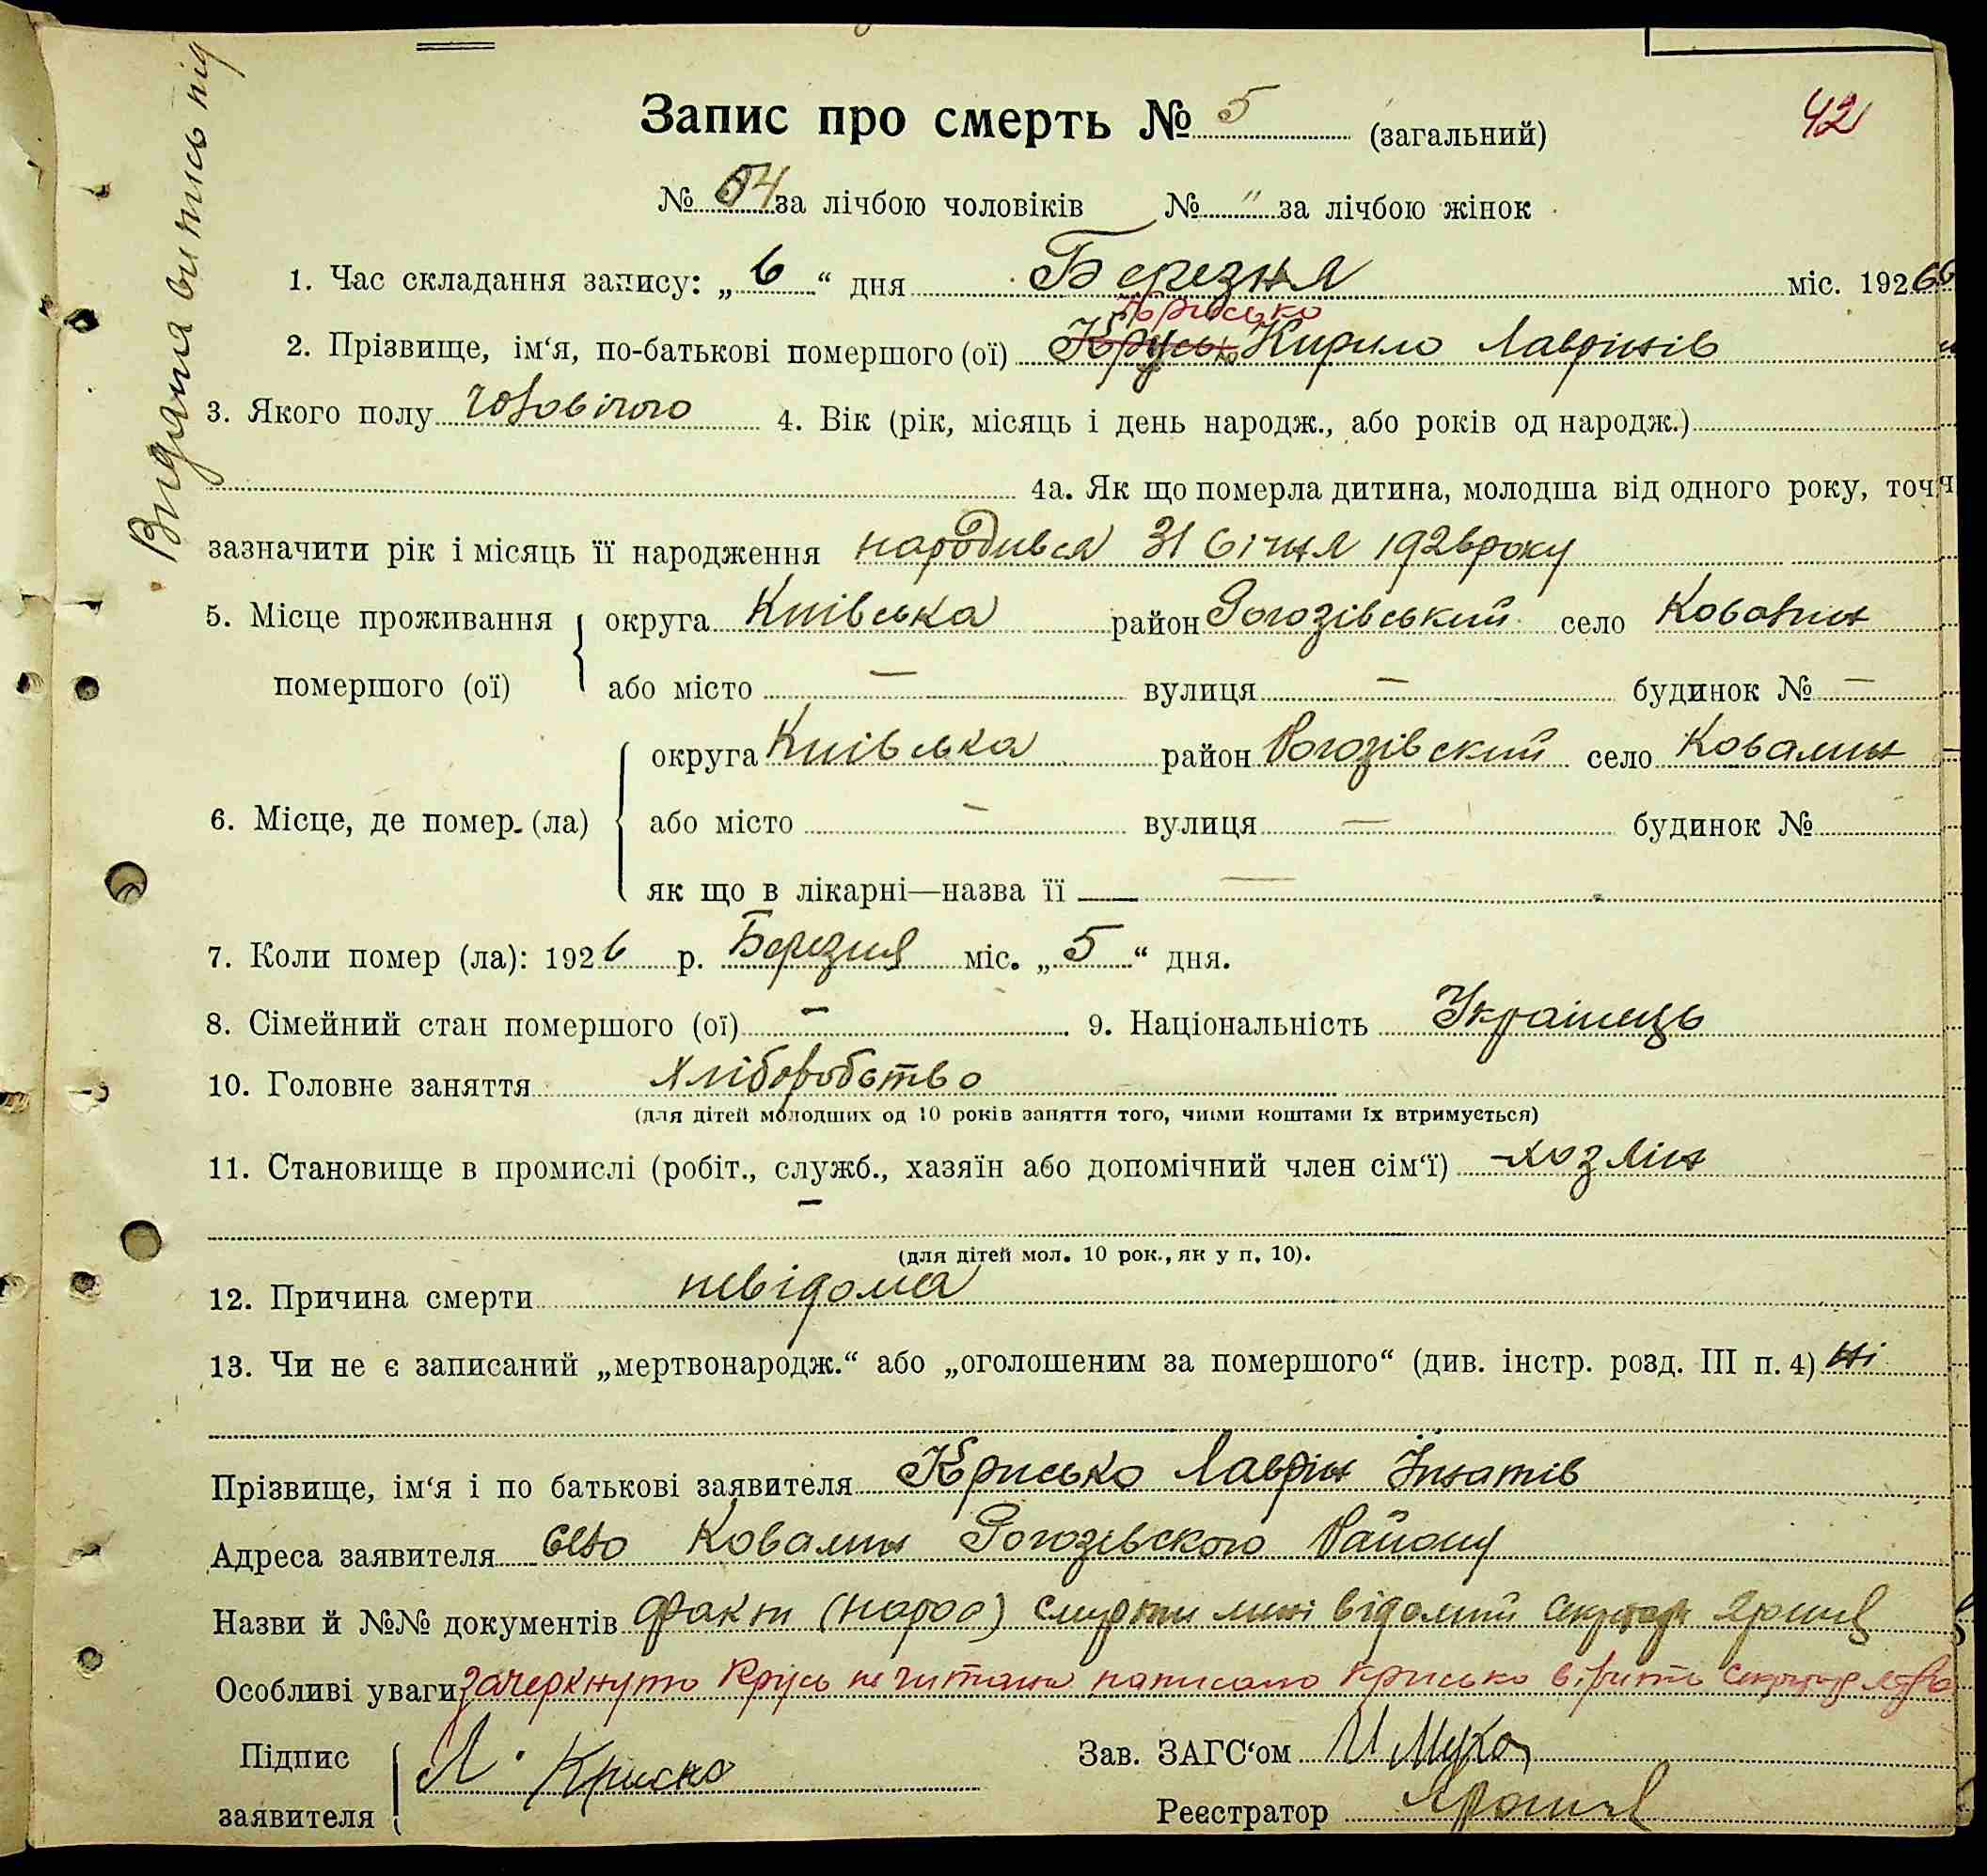 Видана випись під
42
Запис про смерть № 5 (загальний)
№ 4 за лічбою чоловіків № " за лічбою жінок
1. Час складання запису: „ 6 “ дня Березня міс. 1926
Крисько
2. Прізвище, ім‘я, по-батькові помершого (ої) Крусько Кирило Лавринів
3. Якого полу чоловічого 4. Вік (рік, місяць і день народж., або років од народж.)
4а. Як що померла дитина, молодша від одного року, точ
зазначити рік і місяць її народження народився 31 Січня 1926 року
5. Місце проживання округа Київська район Рогозівський село Ковалин
помершого (ої) або місто — вулиця — будинок № —
округа Київська район Рогозівский село Ковалин
6. Місце, де помер. (ла) або місто — вулиця — будинок №
як що в лікарні—назва її —
7. Коли помер (ла): 1926 р. Березня міс. „ 5 “ дня.
8. Сімейний стан помершого (ої) — 9. Національність Українець
10. Головне заняття Хліборобство
(для дітей молодших од 10 років заняття того, чиїми коштами їх втримується)
11. Становище в промислі (робіт., служб., хазяїн або допомічний член сім‘ї) хозяін
—
(для дітей мол. 10 рок., як у п. 10).
12. Причина смерти невідома
13. Чи не є записаний „мертвонародж.“ або „оголошеним за помершого“ (див. інстр. розд. III п. 4) ні
Прізвище, ім‘я і по батькові заявителя Крисько Лаврін Ігнатів
Адреса заявителя село Ковалин Рогозівського Району
Назви й №№ документів Факт смерти мині відомий секретарь
Особливі уваги зачеркнуто Крусь не читати написано Крисько вірить секретарь
Підпис Л. Криско Зав. ЗАГС‘ом И Муха
заявителя Реєстратор